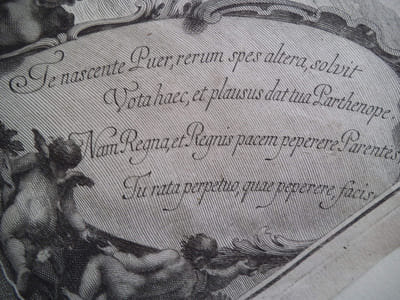 Te nascente Puer, rerum spes altera, solvit
Vota haec, et plausus dat tua Parthenope.
Nam Regna, et Regnis pacem peperere Parentes
Tu rata perpetuo, quae peperere, facis.